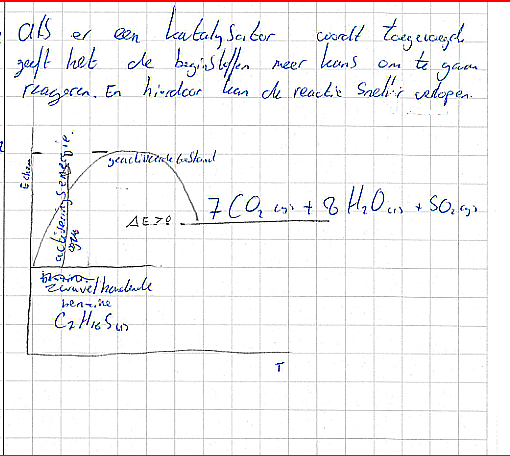 als er een katalysator wordt toegevoegd
geeft het de beginstoffen meer kans om te gaan
reageren. En hierdoor kan de reactie sneller verlopen.
Echem
activeringsenergie
geactiveerde toestand
ΔE>0
7CO2 (g) + 8 H2O (l) + SO2 (g)
zwavelhoudende
benzine
C7H16S (l)
T